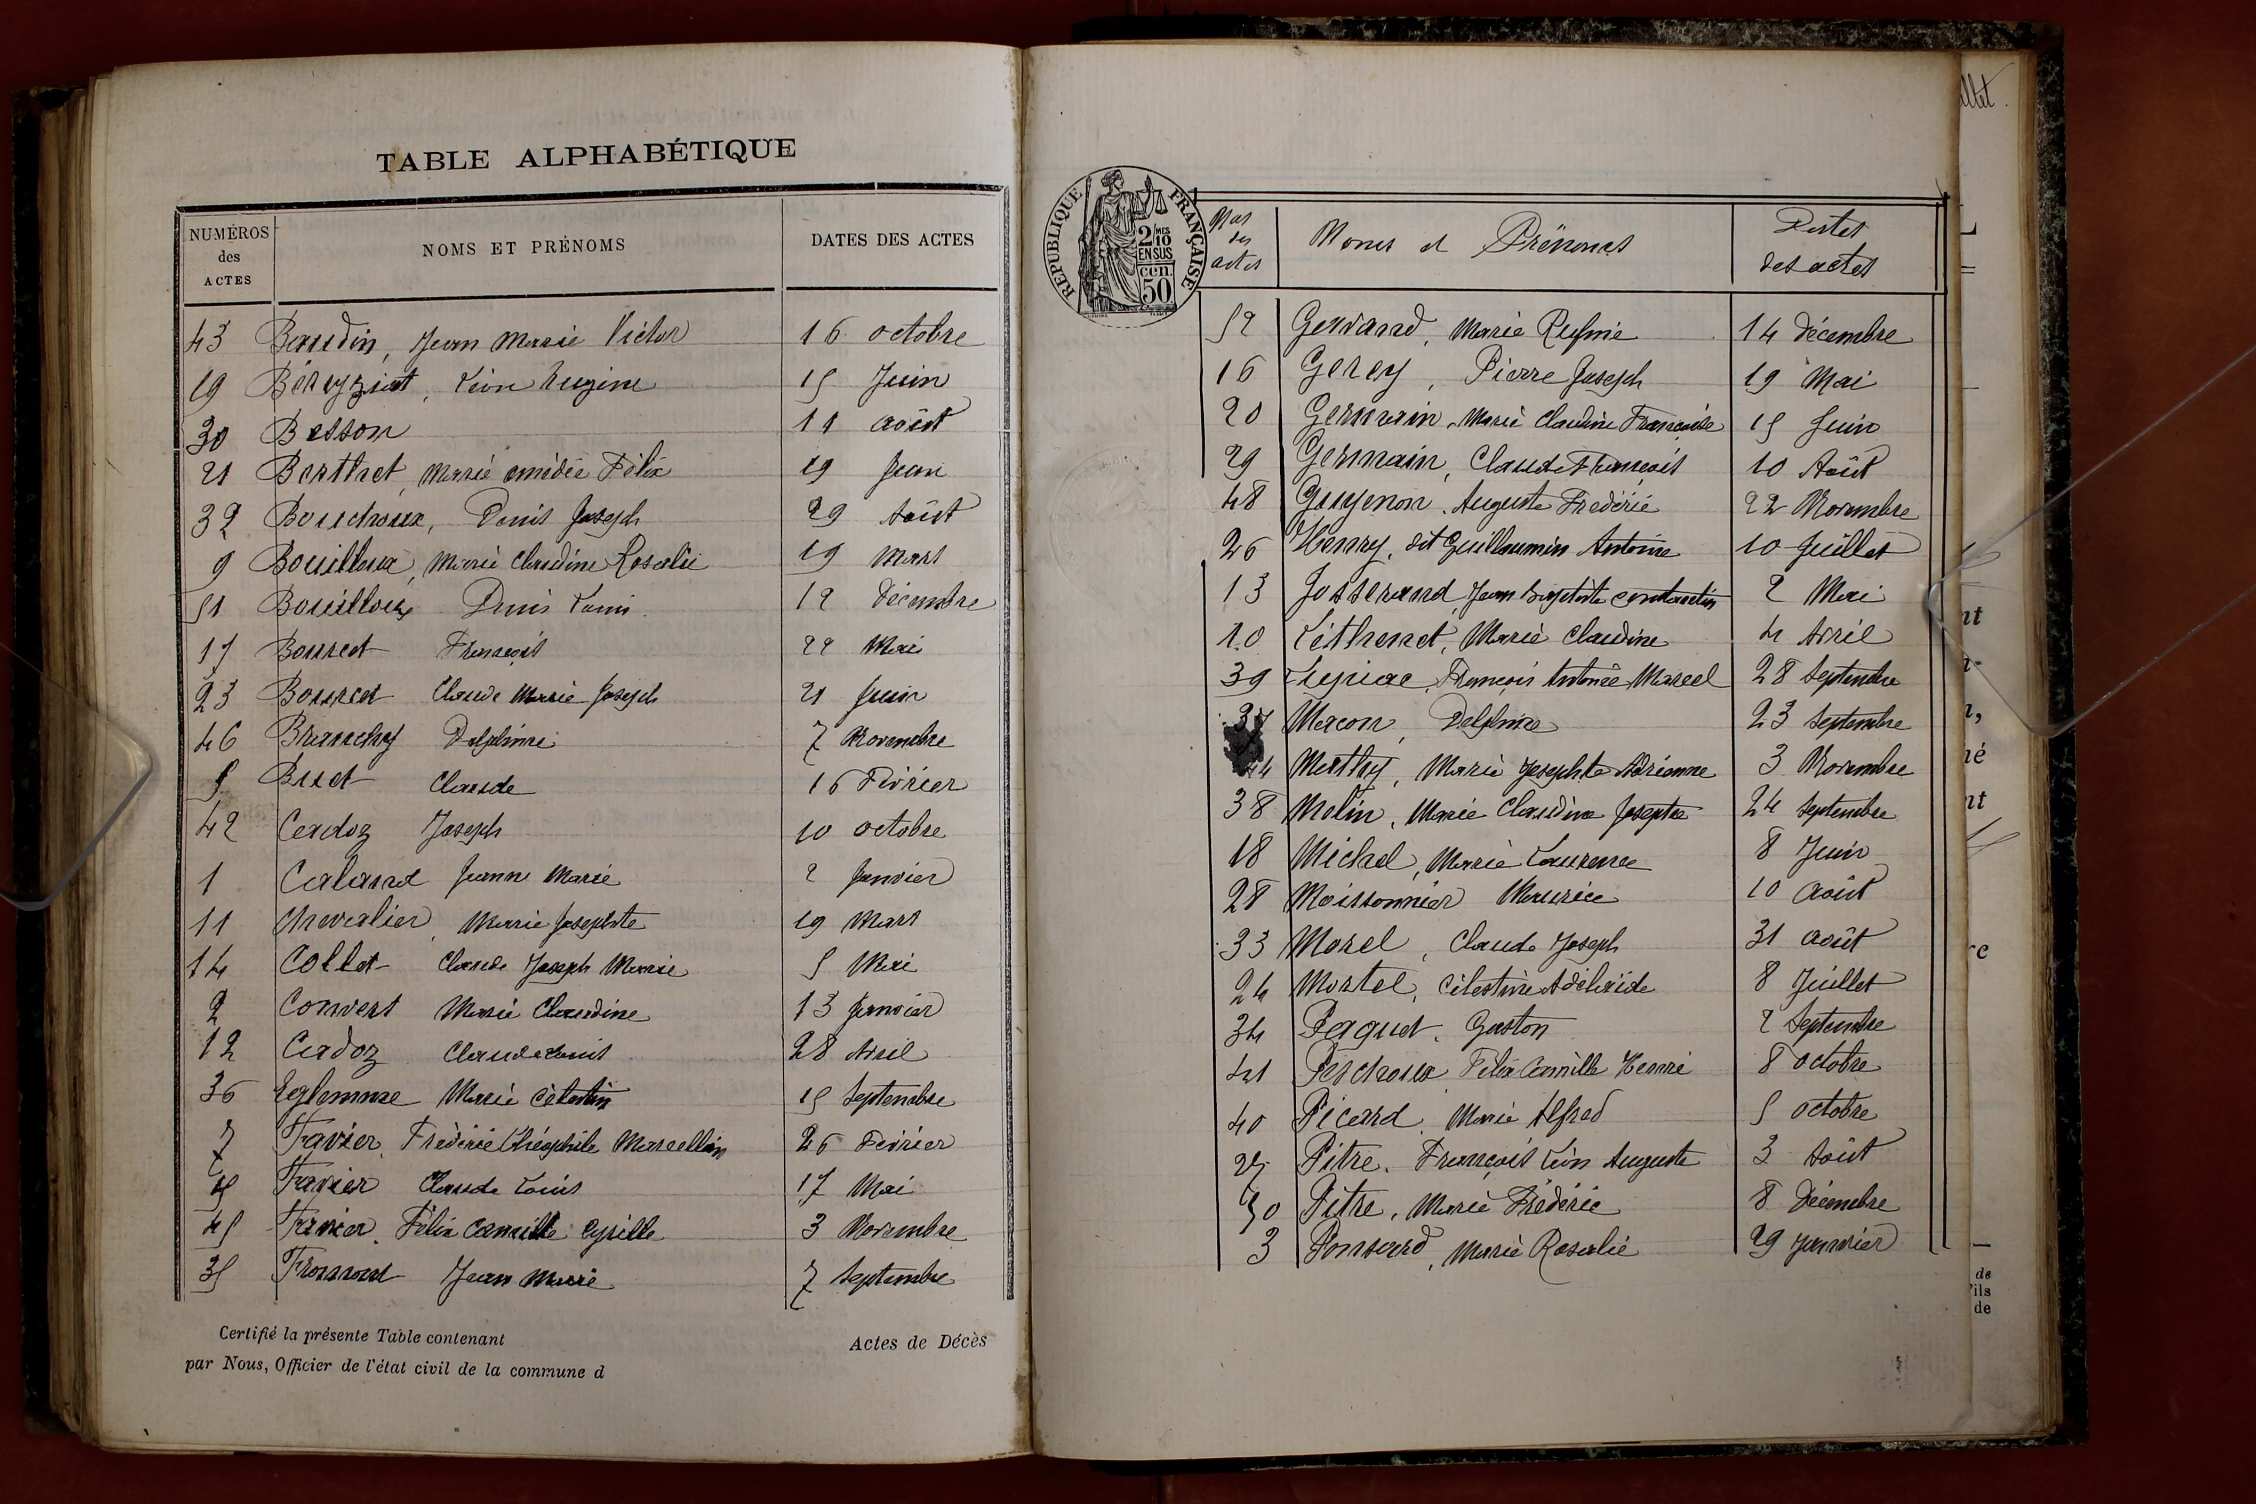 TABLE ALPHABÉTIQUE
NUMÉROS des ACTES
NOMS ET PRÉNOMS
DATES DES ACTES
43 Baudin, Jean Marie Victor 16 octobre
19 Béreyziat, Léon Eugène 15 Juin
30 Besson 11 août
21 Berthet, Marie amédée Félix 19 Juin
32 Bouchoux, Denis Joseph 29 Août
9 Bouilloux, Marie Claudine Rosalie 19 Mars
51 Bouilloux Denis Louis 12 Décembre
17 Bourcet François 22 Mai
23 Bourcet Claude Marie Joseph 21 Juin
46 Branchy Delphine 7 Novembre
5 Buet Claude 16 Février
42 Cadoz Joseph 10 octobre
1 Caland Jeanne Marie 2 Janvier
11 Chevalier, Marie Josephte 19 Mars
14 Collet Claude Joseph Marie 5 Mai
2 Convert Marie Claudine 13 Janvier
12 Cadoz Claude Louis 28 Avril
36 Marie Célestin 15 Septembre
7 Favier, Fréderic Théophile Marcellin 26 Février
15 Favier Claude Louis 17 Mai
45 Favier, Félix Camille Cyrille 3 Novembre
35 Fromont Jean Marie 7 Septembre
Certifié la présente Table contenant Actes de Décès
par Nous, Officier de l'état civil de la commune d
RÉPUBLIQUE FRANÇAISE
2 MES 10 EN SUS
CEN. 50
Nos des actes
Noms et Prénoms
Dates des actes
52 Gervand, Marie Rufine 14 Décembre
16 Gerey, Pierre Joseph 19 Mai
20 Germain, Marie Claudine Françoise 15 Juin
29 Germain, Claude François 10 Août
48 Guyenon, Auguste Fréderic 22 Novembre
26 Henry, dit Guillaumin Antoine 10 Juillet
13 Josserand Jean Baptiste constantin 2 Mai
10 Léthenet, Marie Claudine 4 Avril
39 Lupiac, François Antoine Marcel 28 Septembre
37 Macon, Delphine 23 Septembre
44 Mathy, Marie Josephte Adrienne 3 Novembre
38 Melin, Marie Claudine Josepte 24 Septembre
18 Michel, Marie Laurence 8 Juin
28 Moissonnier Maurice 10 Août
33 Morel, Claude Joseph 31 août
24 Mortel, Célestine Adélaïde 8 Juillet
34 Paquet, Gaston 2 Septembre
41 Perchoux Félix Camille Henri 8 octobre
40 Picard, Marie Alfred 5 octobre
27 Pitre, François Léon Auguste 3 Août
50 Pitre, Marie Fréderic 8 Décembre
3 Ponsard, Marie Rosalie 29 Janvier